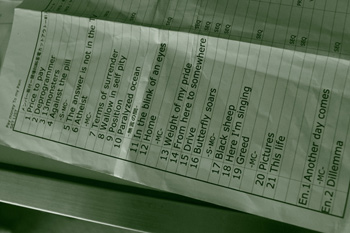 1 Price to pay
2 Superprobe
3 3monsters
4 Against the pill
-S-MC-
5 The answer is not in the
6 Atheist
-MC-
7 Terms of surrender
8 Wallow in self pity
9 Position
10 Paralyzed ocean
11 In the blink of an eyes
12 Home
-MC-
13 Weight of my pride
14 From here to somewhere
15 Drive
16 Butterfly soars
-S-MC-
17 Black sheep
18 Here I'm singing
19 Greed
-MC-
20 Pictures
21 This life
En.1 Another day comes
-MC-
En.2 Dillemma
SEQ
SEQ
SEQ
SEQ
SEQ
SEQ